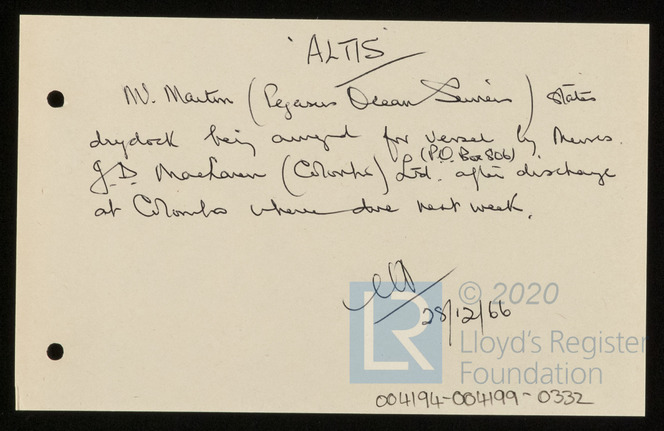 'ALTIS'
Mr. Martin (Pegasus Ocean Services) states
drydock being arranged for vessel by Messrs.
(P.O. Box 806)
J.D. MacLaren (Colombo) Ltd. after discharge
at Colombo where due next week.
28/12/66
© 2020
LR
Lloyd's Register
Foundation
004194-004199-0332